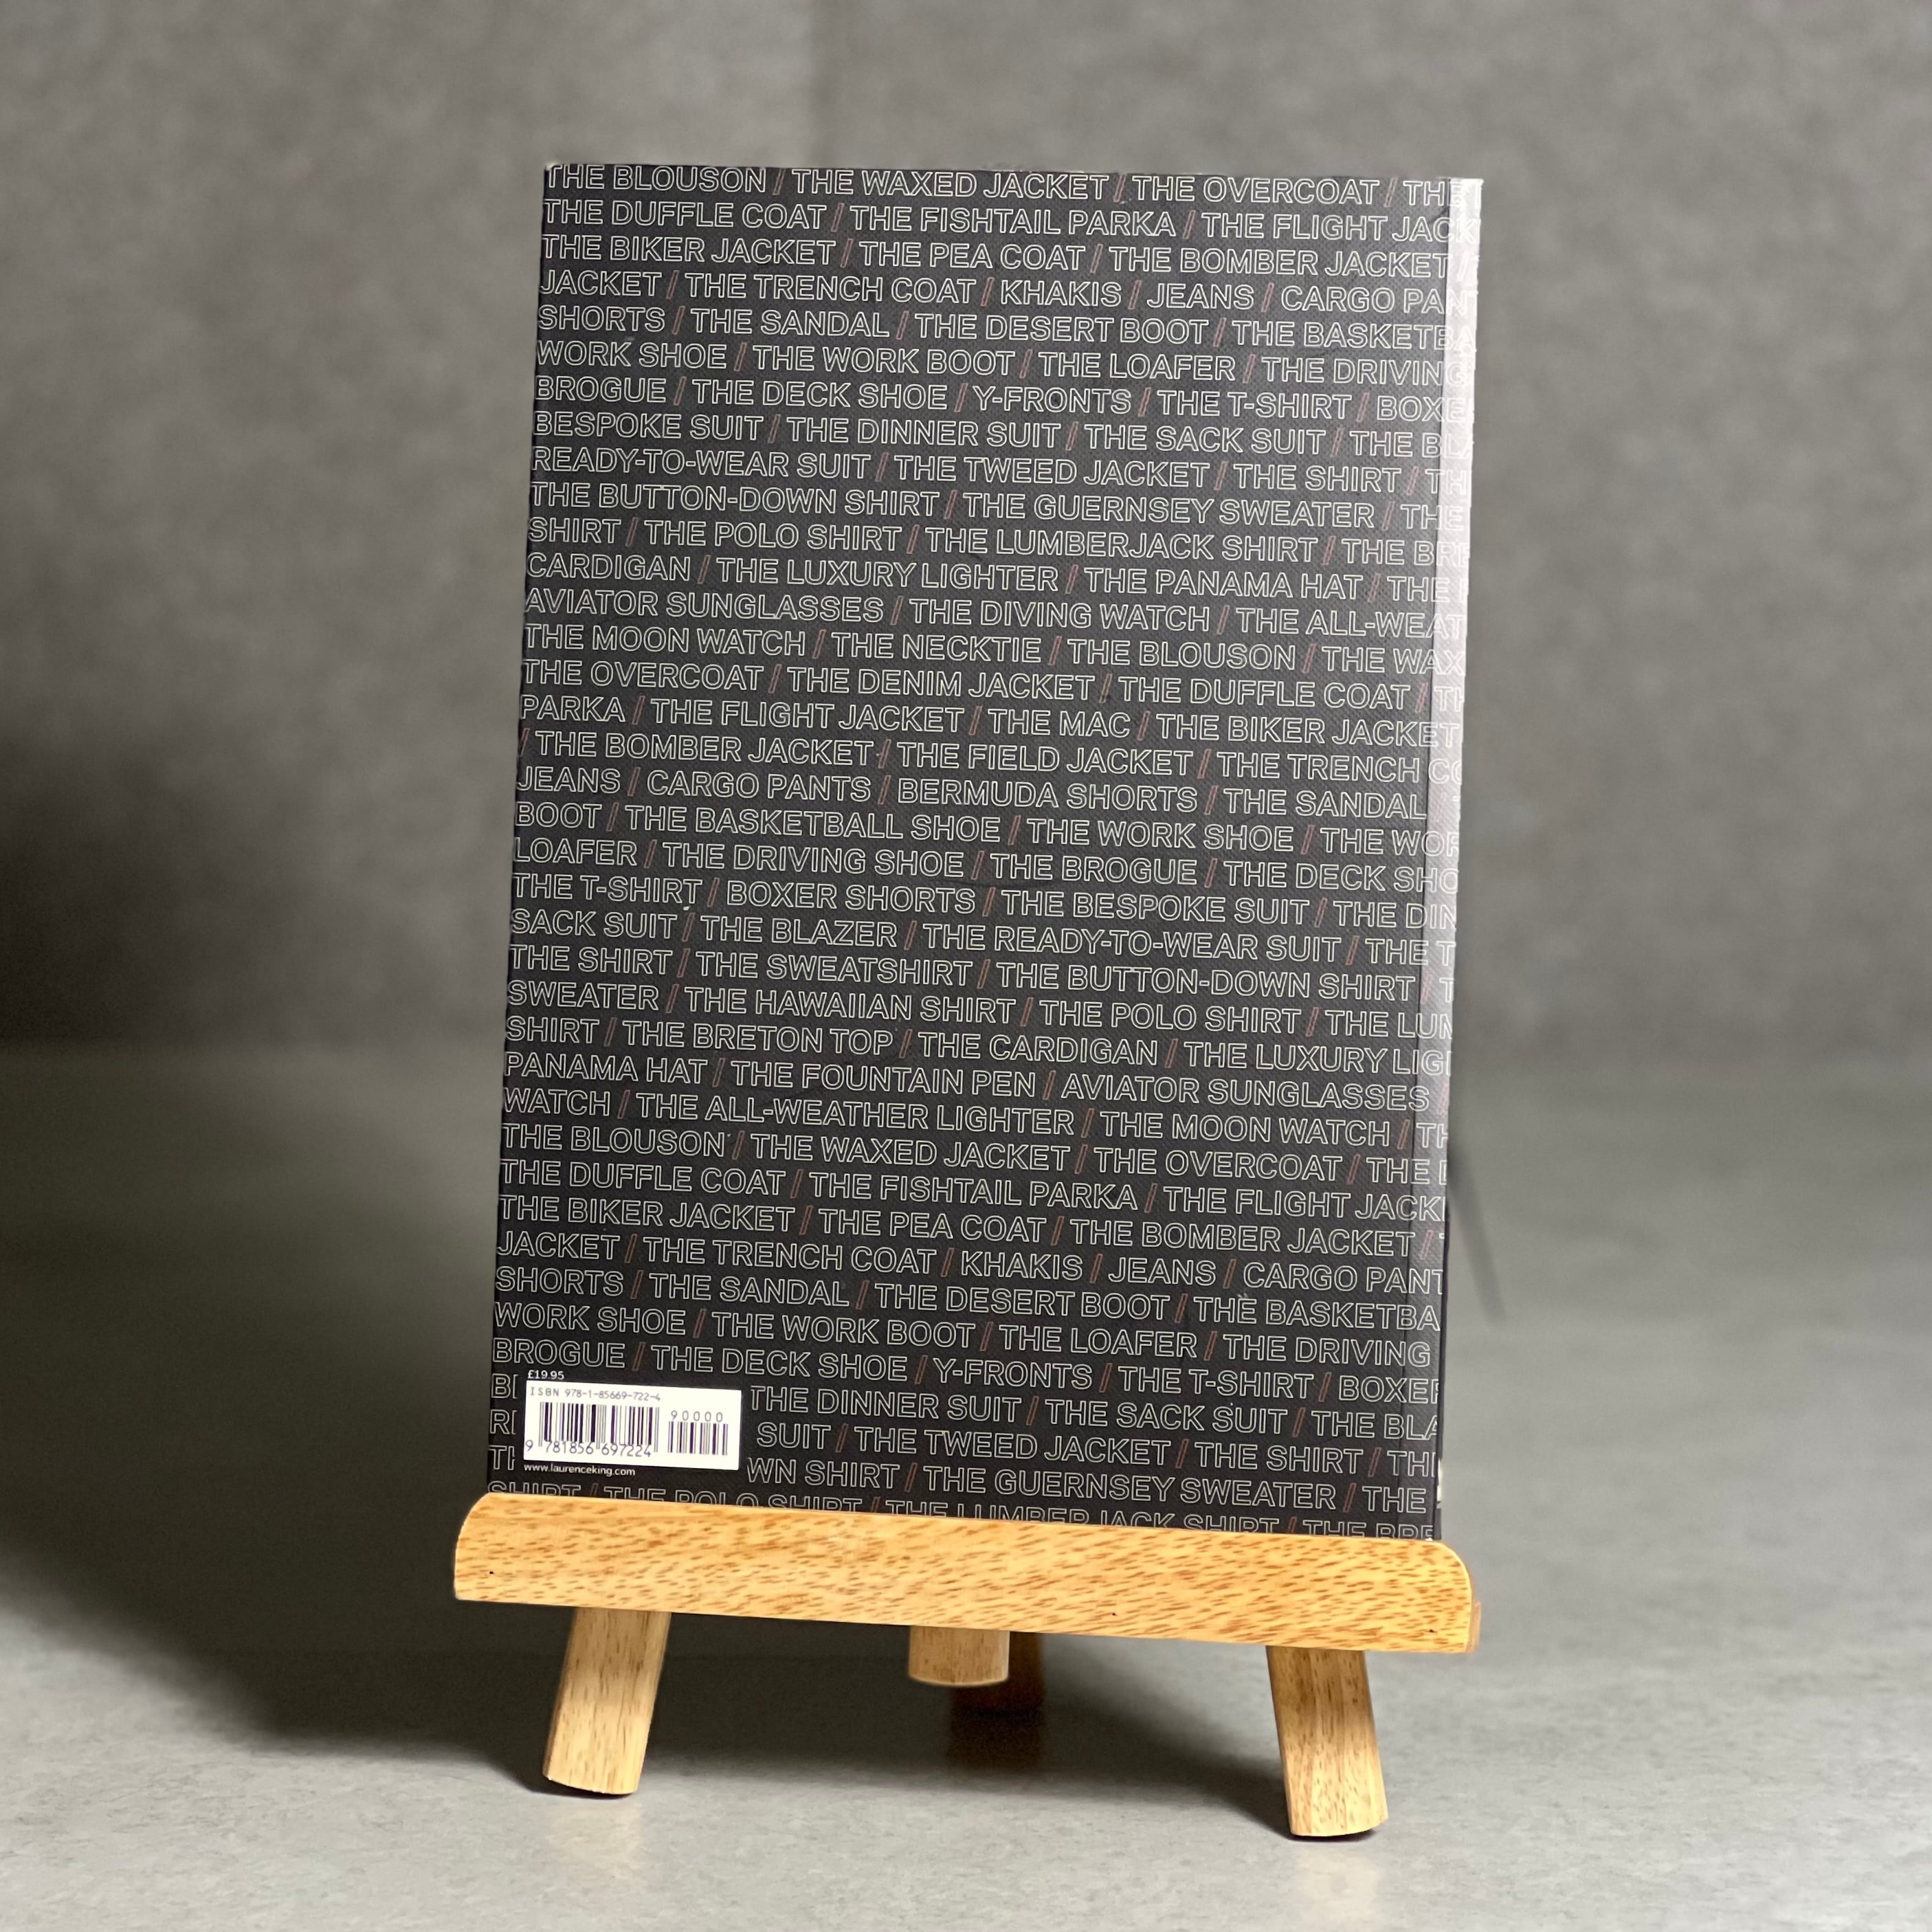 THE BLOUSON / THE WAXED JACKET / THE OVERCOAT / THE
THE DUFFLE COAT / THE FISHTAIL PARKA / THE FLIGHT JACK
THE BIKER JACKET / THE PEA COAT / THE BOMBER JACKET /
JACKET / THE TRENCH COAT / KHAKIS / JEANS / CARGO PAN
SHORTS / THE SANDAL / THE DESERT BOOT / THE BASKETBA
WORK SHOE / THE WORK BOOT / THE LOAFER / THE DRIVING
BROGUE / THE DECK SHOE / Y-FRONTS / THE T-SHIRT / BOXE
BESPOKE SUIT / THE DINNER SUIT / THE SACK SUIT / THE BLA
READY-TO-WEAR SUIT / THE TWEED JACKET / THE SHIRT / TH
THE BUTTON-DOWN SHIRT / THE GUERNSEY SWEATER / THE
SHIRT / THE POLO SHIRT / THE LUMBERJACK SHIRT / THE BRE
CARDIGAN / THE LUXURY LIGHTER / THE PANAMA HAT / THE
AVIATOR SUNGLASSES / THE DIVING WATCH / THE ALL-WEAT
THE MOON WATCH / THE NECKTIE / THE BLOUSON / THE WAX
THE OVERCOAT / THE DENIM JACKET / THE DUFFLE COAT / TH
PARKA / THE FLIGHT JACKET / THE MAC / THE BIKER JACKET
/ THE BOMBER JACKET / THE FIELD JACKET / THE TRENCH CO
JEANS / CARGO PANTS / BERMUDA SHORTS / THE SANDAL
BOOT / THE BASKETBALL SHOE / THE WORK SHOE / THE WOR
LOAFER / THE DRIVING SHOE / THE BROGUE / THE DECK SHO
THE T-SHIRT / BOXER SHORTS / THE BESPOKE SUIT / THE DIN
SACK SUIT / THE BLAZER / THE READY-TO-WEAR SUIT / THE T
THE SHIRT / THE SWEATSHIRT / THE BUTTON-DOWN SHIRT / T
SWEATER / THE HAWAIIAN SHIRT / THE POLO SHIRT / THE LUM
SHIRT / THE BRETON TOP / THE CARDIGAN / THE LUXURY LIGH
PANAMA HAT / THE FOUNTAIN PEN / AVIATOR SUNGLASSES
WATCH / THE ALL-WEATHER LIGHTER / THE MOON WATCH / TH
THE BLOUSON / THE WAXED JACKET / THE OVERCOAT / THE D
THE DUFFLE COAT / THE FISHTAIL PARKA / THE FLIGHT JACK
THE BIKER JACKET / THE PEA COAT / THE BOMBER JACKET / T
JACKET / THE TRENCH COAT / KHAKIS / JEANS / CARGO PANT
SHORTS / THE SANDAL / THE DESERT BOOT / THE BASKETBA
WORK SHOE / THE WORK BOOT / THE LOAFER / THE DRIVING
BROGUE / THE DECK SHOE / Y-FRONTS / THE T-SHIRT / BOXER
£19.95
ISBN 978-1-85669-722-4
90000
9 781856 697224
www.laurenceking.com
BE THE DINNER SUIT / THE SACK SUIT / THE BLA
RE SUIT / THE TWEED JACKET / THE SHIRT / TH
TH WN SHIRT / THE GUERNSEY SWEATER / THE
SHIRT / THE POLO SHIRT / THE LUMBERJACK SHIRT / THE BRE